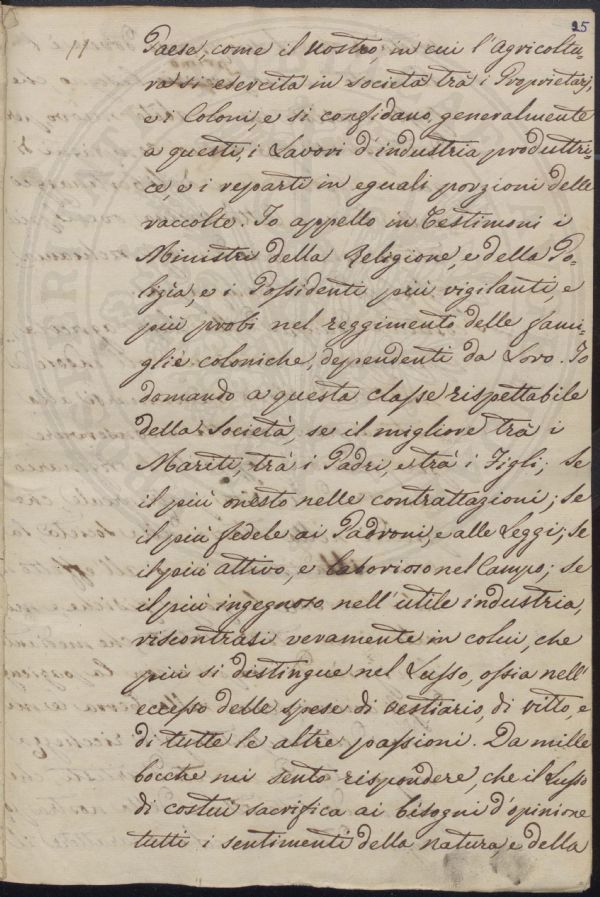 25
Paese, come il nostro, in cui l'Agricoltu-
ra si esercita in società trà i Proprietarj,
e i Coloni, e si confidano, generalmente
a questi, i Lavori d'industria produttri-
ce, e i reparti in eguali porzioni delle
raccolte. Io appello in Testimoni i
Ministri della Religione, e della Po-
lizìa, e i Possidenti più vigilanti, e
più probi nel reggimento delle fami-
glie coloniche, dependenti da Loro. Io
domando a questa classe rispettabile
della Società, se il migliore trà i
Mariti, trà i Padri, e trà i Figli; se
il più onesto nelle contrattazioni; se
il più fedele ai Padroni, e alle Leggi; se
il più attivo, e laborioso nel Campo; se
il più ingegnoso nell'utile industria,
riscontrasi veramente in colui, che
più si distingue nel Lusso, ossia nell'
eccesso delle spese di vestiario, di vitto, e
di tutte le altre passioni. Da mille
bocche mi sento rispondere, che il Lusso
di costui sacrifica ai bisogni d'opinione
tutti i sentimenti della natura, e della